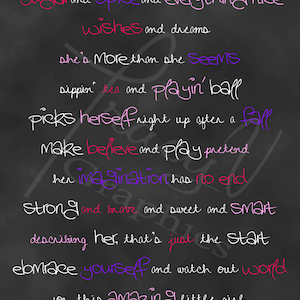 sugar and spice and everything nice
wishes and dreams
she's more than she seems
sippin' tea and playin' ball
picks herself right up after a fall
make believe and play pretend
her imagination has no end
strong and brave and sweet and smart
describing her, that's just the start
embrace yourself and watch out world
for this amazing little girl